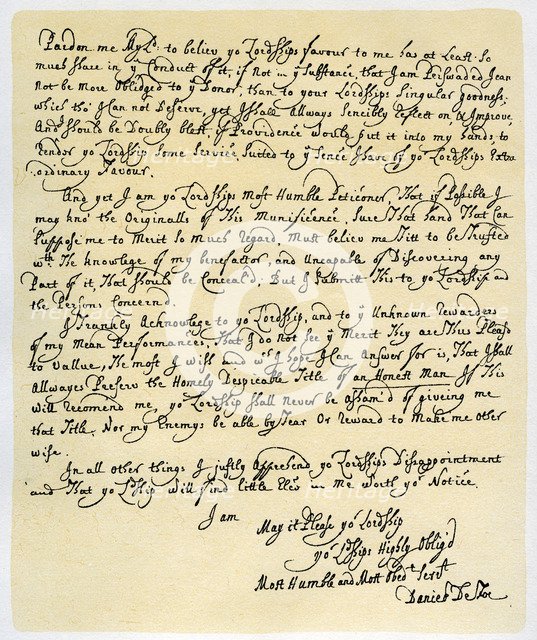 Pardon me My Ld: to believ yor Lordships favour to me has at Least so
much share in ye Conduct of it, if not in ye substance that I am Perswaded I can
not be More Obliged to ye Donor, than to your Lordships Singular goodness;
which tho' I can not Deserve, yet I shall Allways Sencibly reflect on, & Improve.
And should be Doubly blest, if Providence would put it into my hands to
render yor Lordship Some Service suited to ye sence I have of yor Lordships Extra
ordinary Favour.
And yet I am yor Lordships Most Humble Peticoner, That if Possible I
may kno' the Originalls of This Munificence, Sure That hand That Can
Suppose me to Merit so Much regard, Must believ me Fitt to be Trusted
wth The knowlege of my benefactor, and Uncapable of Discovering any
Part of it, That should be Conceal'd; But I Submitt This to yor Lordship and
the Persons Concernd.
I Frankly Acknowlege to yor Lordship, and to ye Unknown rewarders
of my Mean Performances, That I do not see ye Merit They are Thus Pleasd
to vallue; The most I wish and wch I hope I can Answer for is, That I shall
Allwayes Preserv the Homely Despicable Title of an Honest Man. If This
will recomend me, yor Lordship shall never be asham'd of giveing me
that Title, Nor my Enemys be able by Fear Or reward to Make me other
wise.
In all other things I justly Apprehend yor Lordships Disappointment
and That yor Ldship will find little Else in me worth yor Notice.
I am
May it Please yor Lordship
yor Ldships Highly Oblig'd
Most Humble and Most Obedt Servt
Daniel De Foe